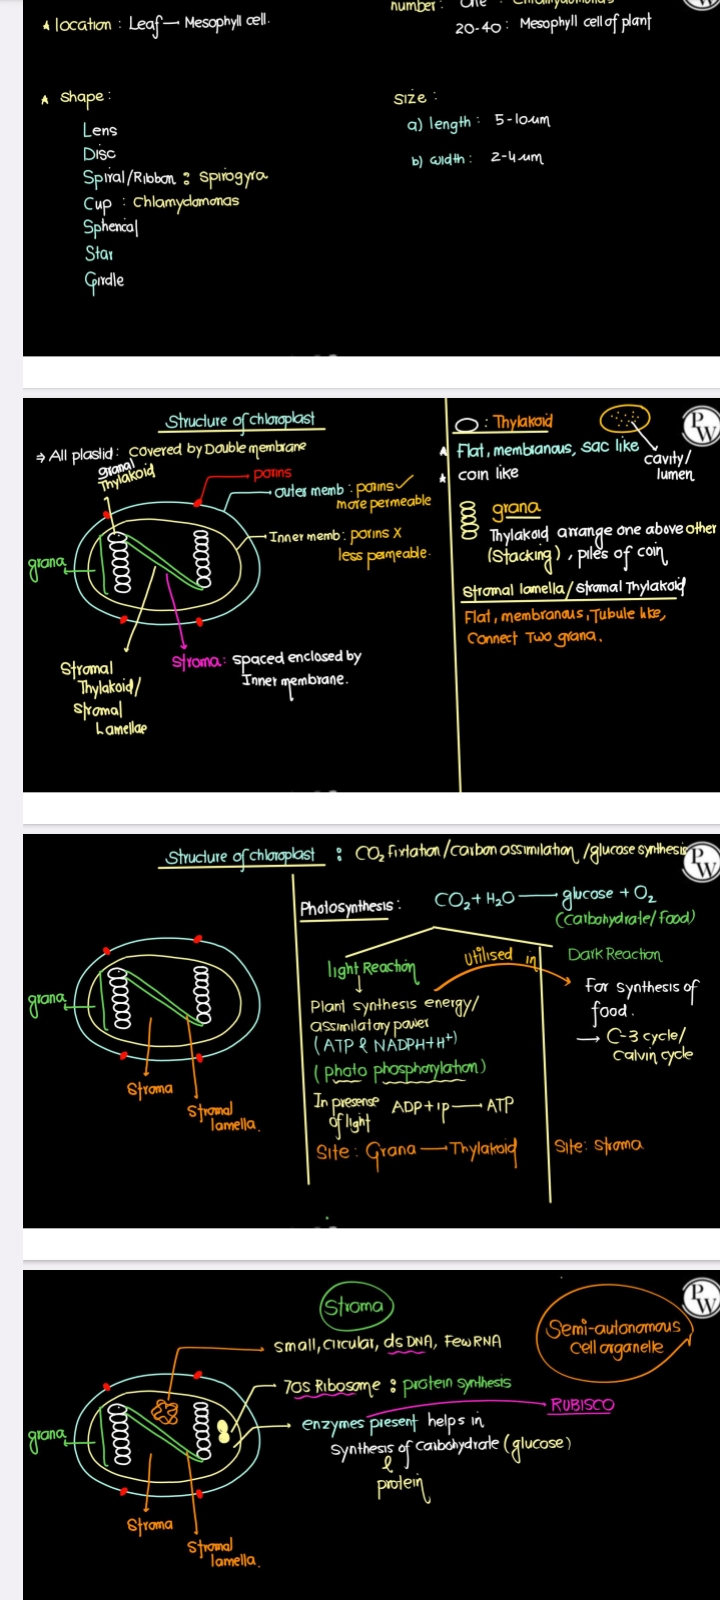 number: One : Chlamydomonas
★ location : Leaf — Mesophyll cell.
20-40 : Mesophyll cell of plant
★ shape :
Lens
Disc
Spiral/Ribbon : spirogyra
Cup : Chlamydomonas
Spherical
Star
Girdle
size :
a) length : 5-10um
b) width : 2-4um
PW
Structure of chloroplast
⇒ All plastid : covered by Double membrane
granal
Thylakoid
porins
outer memb : porins ✓
more permeable
Inner memb : porins X
less permeable.
grana
Stromal
Thylakoid/
Stromal
Lamellae
Stroma : spaced enclosed by
Inner membrane.
: Thylakoid
★ Flat, membranous, sac like
★ coin like
cavity/
lumen
grana
Thylakoid arrange one above other
(Stacking), piles of coin
Stromal lamella/Stromal Thylakoid
Flat, membranous, Tubule like,
Connect Two grana.
PW
Structure of chloroplast : CO₂ fixtation/carbon assimilation/glucose synthesis
grana
Stroma
Stromal
lamella.
Photosynthesis :
CO₂ + H₂O —— glucose + O₂
(carbohydrate/food)
light Reaction
Utilised in
Dark Reaction
Plant synthesis energy/
assimilatory power
(ATP & NADPH+H⁺)
(photo phosphorylation)
In presense
of light
ADP + ip —— ATP
Site : Grana —— Thylakoid
For synthesis of
food.
→ C-3 cycle/
Calvin cycle
Site : stroma
PW
Stroma
Semi-autonomous
cell organelle
small, circular, ds DNA, Few RNA
70s Ribosome : protein synthesis
RUBISCO
enzymes present helps in
synthesis of carbohydrate (glucose)
&
protein
grana
Stroma
Stromal
lamella.